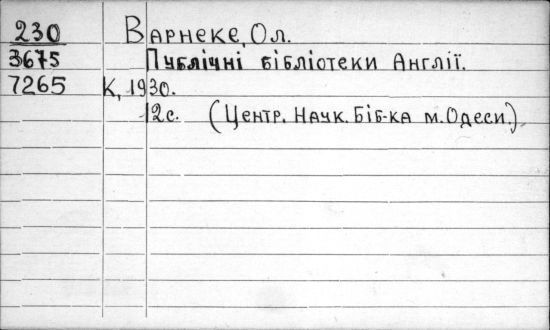 230 Варнеке, Ол.
3675 Публічні бібліотеки Англії.
7265 К, 1930.
12с. (Центр. Наук. Біб-ка м. Одеси.)